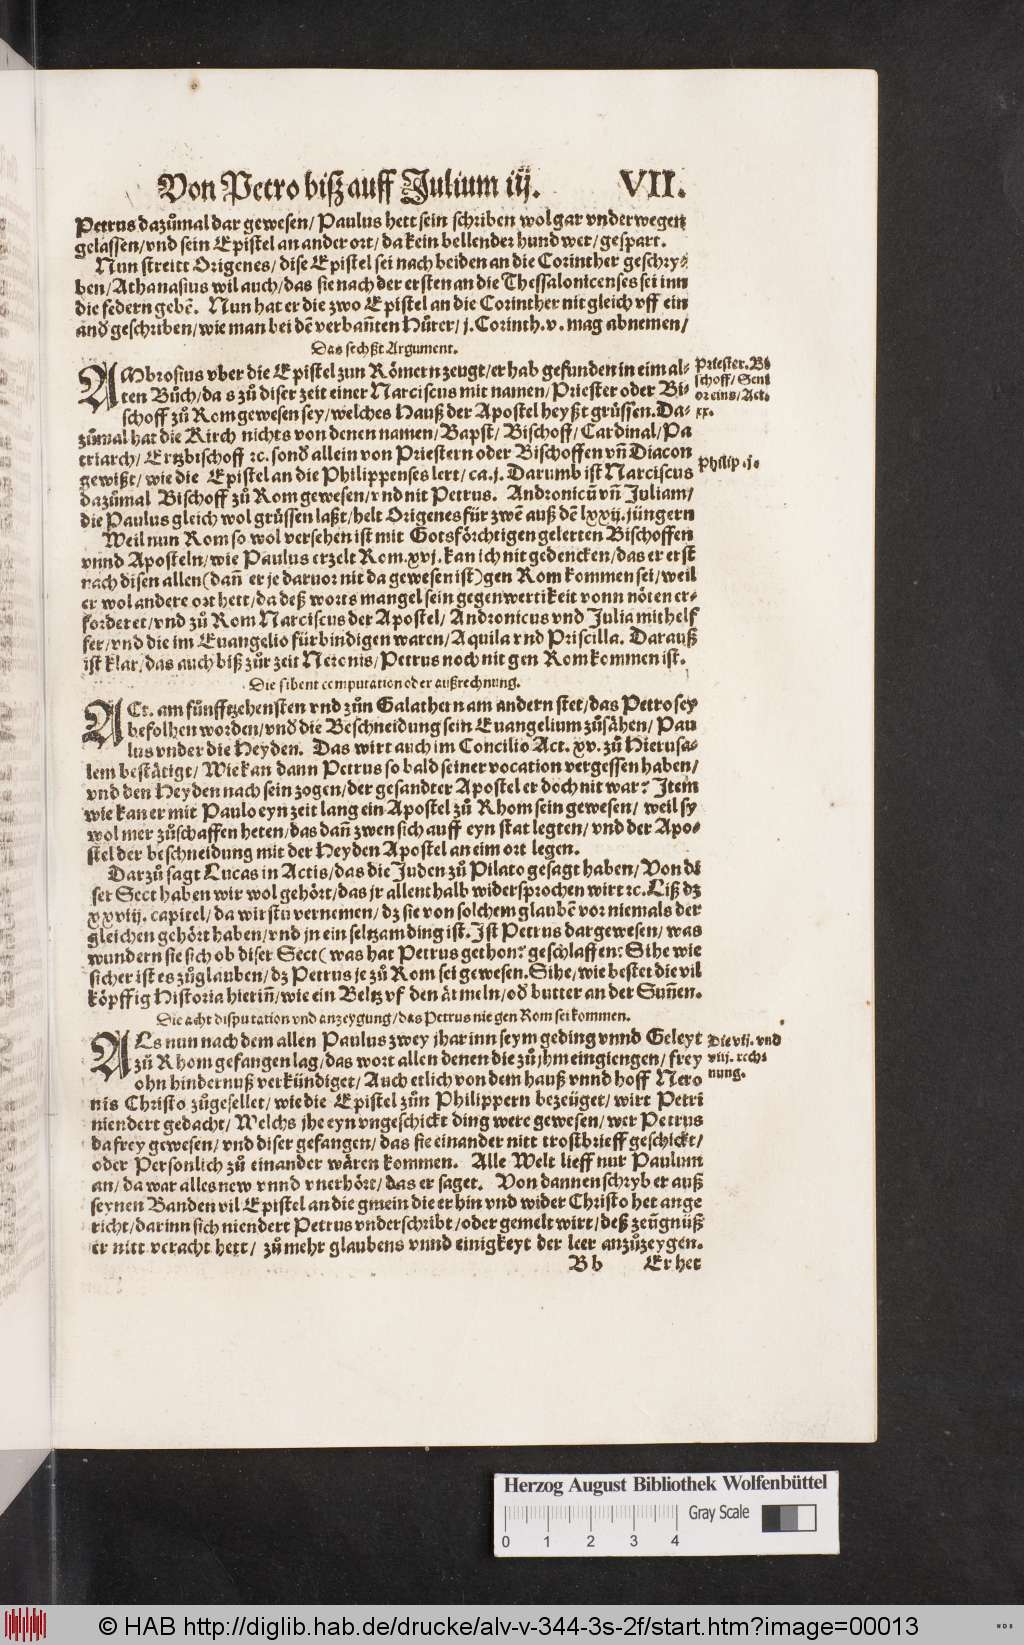 Von Petro biſz auff Julium iij. VII.
Petrus dazůmal dar geweſen/ Paulus hett ſein ſchriben wol gar vnderwegen
gelaſſen/ vnd ſein Epiſtel an ander ort/ da kein bellender hund wer/ geſpart.
Nun ſtreitt Origenes/ diſe Epiſtel ſei nach beiden an die Corinther geſchry-
ben/ Athanaſius wil auch/ das ſie nach der erſten an die Theſſalonicenſes ſei inn
die federn gebē. Nun hat er die zwo Epiſtel an die Corinther nit gleich vff ein
and̄ geſchriben/ wie man bei dē verbañten Hůrer/ j. Corinth. v. mag abnemen/
Das ſechßt Argument.
AMbroſius vber die Epiſtel zun Römern zeugt/ er hab gefunden in eim al-
ten Bůch/ da s zů diſer zeit einer Narciſcus mit namen/ Prieſter oder Bi-
ſchoff zů Rom geweſen ſey/ welches Hauß der Apoſtel heyßt grüſſen. Da-
zůmal hat die Kirch nichts von denen namen/ Bapſt/ Biſchoff/ Cardinal/ Pa
triarch/ Ertzbiſchoff ꝛc. ſond̄ allein von Prieſtern oder Biſchoffen vñ Diacon
gewißt/ wie die Epiſtel an die Philippenſes lert/ ca. j. Darumb iſt Narciſcus
dazůmal Biſchoff zů Rom geweſen/ vnd nit Petrus. Andronicū vñ Juliam/
die Paulus gleich wol grüſſen laßt/ helt Origenes für zwē auß dē lxxij. jüngern
Weil nun Rom ſo wol verſehen iſt mit Gotsförchtigen gelerten Biſchoffen
vnnd Apoſteln/ wie Paulus erzelt Rom. xvj. kan ich nit gedencken/ das er erſt
nach diſen allen (dañ er je daruor nit da geweſen iſt) gen Rom kommen ſei/ weil
er wol andere ort hett/ da deß worts mangel ſein gegenwertikeit vonn nöten er-
forderet/ vnd zů Rom Narciſcus der Apoſtel/ Andronicus vnd Julia mithelf
fer/ vnd die im Euangelio fürbindigen waren/ Aquila vnd Priſcilla. Darauß
iſt klar/ das auch biß zůr zeit Neronis/ Petrus noch nit gen Rom kommen iſt.
Die ſibent computation oder außrechnung.
ACt. am fünfftzehenſten vnd zůn Galathern am andern ſtet/ das Petro ſey
befolhen worden/ vnd̄ die Beſchneidung ſein Euangelium zůſähen/ Pau
lus vnder die Heyden. Das wirt auch im Concilio Act. xv. zů Hieruſa-
lem beſtätigt/ Wie kan dann Petrus ſo bald ſeiner vocation vergeſſen haben/
vnd den Heyden nach ſein zogen/ der geſandter Apoſtel er doch nit war? Jtem
wie kan er mit Paulo eyn zeit lang ein Apoſtel zů Rhom ſein geweſen/ weil ſy
wol mer zůſchaffen heten/ das dañ zwen ſich auff eyn ſtat legten/ vnd der Apo-
ſtel der beſchneidung mit der Heyden Apoſtel an eim ort legen.
Darzů ſagt Lucas in Actis/ das die Juden zů Pilato geſagt haben/ Von di
ſer Sect haben wir wol gehört/ das jr allenthalb widerſprochen wirt ꝛc. Liß dz
xxviij. capitel/ da wirſtu vernemen/ dz ſie von ſolchem glaubē vor niemals der
gleichen gehört haben/ vnd jn ein ſeltzam ding iſt. Jſt Petrus dar geweſen/ was
wundern ſie ſich ob diſer Sect (was hat Petrus gethon? geſchlaffen? Sihe wie
ſicher iſt es zůglauben/ dz Petrus je zů Rom ſei geweſen. Sihe/ wie beſtet die vil
köpffig Hiſtoria hieriñ/ wie ein Beltz vf den ärmeln/ od̄ butter an der Suñen.
Die acht diſputation vnd anzeygung/ das Petrus nie gen Rom ſei kommen.
ALs nun nach dem allen Paulus zwey jhar inn ſeym geding vnnd Geleyt
zů Rhom gefangen lag/ das wort allen denen die zů jhm eingiengen/ frey
ohn hindernuß verkündiget/ Auch etlich von dem hauß vnnd hoff Nero
nis Chriſto zůgeſellet/ wie die Epiſtel zůn Philippern bezeüget/ wirt Petri
niendert gedacht/ Welchs jhe eyn vngeſchickt ding were geweſen/ wer Petrus
da frey geweſen/ vnd diſer gefangen/ das ſie einander nitt troſtbrieff geſchickt/
oder Perſonlich zů einander wären kommen. Alle Welt lieff nur Paulum
an/ da war alles new vnnd vnerhört/ das er ſaget. Von dannen ſchryb er auß
ſeynen Banden vil Epiſtel an die gmein die er hin vnd wider Chriſto het ange
richt/ darinn ſich niendert Petrus vnderſchribt/ oder gemelt wirt/ deß zeügnüß
er nitt veracht hett/ zů mehr glaubens vnnd einigkeyt der leer anzůzeygen.
B b Er het
Prieſter. Bi
ſchoff/ Seni
or eins/ Act.
xx.
Philip. j.
Die vij. vnd
viij. rech-
nung.
Herzog August Bibliothek Wolfenbüttel
Gray Scale
0 1 2 3 4
© HAB http://diglib.hab.de/drucke/alv-v-344-3s-2f/start.htm?image=00013